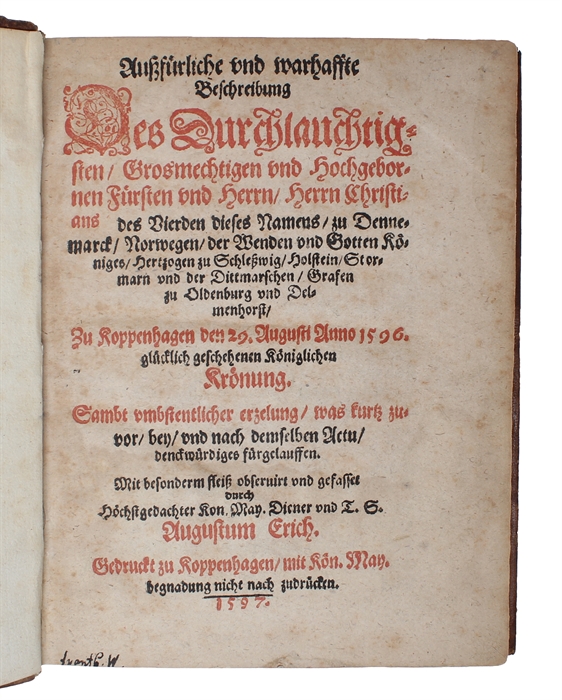 Außfürliche vnd warhaffte
Beschreibung
Des Durchlauchtig-
sten/ Grosmechtigen vnd Hochgebor-
nen Fürsten vnd Herrn/ Herrn Christi-
ans des Vierden dieses Namens/ zu Denne-
marck/ Norwegen/ der Wenden vnd Gotten Kö-
niges/ Hertzogen zu Schleßwig/ Holstein/ Stor-
marn vnd der Dittmarschen/ Grafen
zu Oldenburg vnd Del-
menhorst/
Zu Koppenhagen den 29. Augusti Anno 1596.
glücklich geschehenen Königlichen
Krönung.
Sambt vmbstentlicher erzelung/ was kurtz zu-
vor/ bey/ vnd nach demselben Actu/
denckwürdiges fürgelauffen.
Mit besonderm fleiß obseruirt vnd gefasset
durch
Höchstgedachter Kön. May. Diener vnd T. S.
Augustum Erich.
Gedruckt zu Koppenhagen/ mit Kön. May.
begnadung nicht nach zudrücken.
1597.